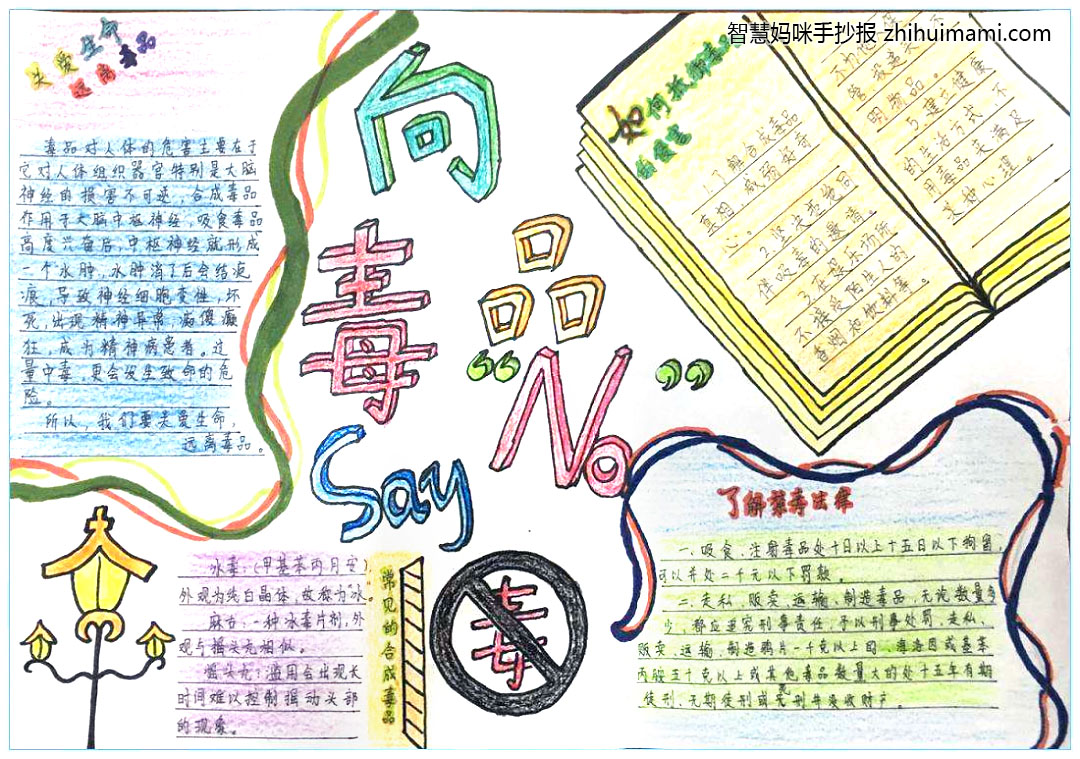 智慧妈咪手抄报 zhihuimami.com
关爱生命
远离毒品
毒品对人体的危害主要在于
它对人体组织器官特别是大脑
神经的损害不可逆,合成毒品
作用于大脑中枢神经,吸食毒品
高度兴奋后,中枢神经就形成
一个水肿,水肿消了后会结疤
痕,导致神经细胞变性,坏
死,出现精神异常,疯傻癫
狂,成为精神病患者。过
量中毒,更会发生致命的危
险。
所以,我们要关爱生命,
远离毒品。
向
毒品
Say “No”
如何抵御毒品
的侵害
1.了解合成毒品
真相,戒弱好奇
心。
2.坚决拒绝同
伴吸毒的邀请。
3.在娱乐场所
不接受陌生人的
香烟和饮料等。
5.建立健康
的生活方式,不
用毒品来满足
某种心理。
冰毒:(甲基苯丙月安),
外观为纯白晶体,故称为“冰”。
麻古:一种冰毒片剂,外
观与摇头丸相似。
摇头丸:滥用会出现长
时间难以控制摇动头部
的现象。
常见的合成毒品
毒
了解禁毒法律
一、吸食、注射毒品处十日以上十五日以下拘留,
可以并处二千元以下罚款。
二、走私、贩卖、运输、制造毒品,无论数量多
少,都应追究刑事责任,予以刑事处罚,走私、
贩卖、运输、制造鸦片一千克以上的、海洛因或基苯
丙胺五十克以上或其他毒品数量大的处十五年有期
徒刑、无期徒刑或死刑并没收财产。